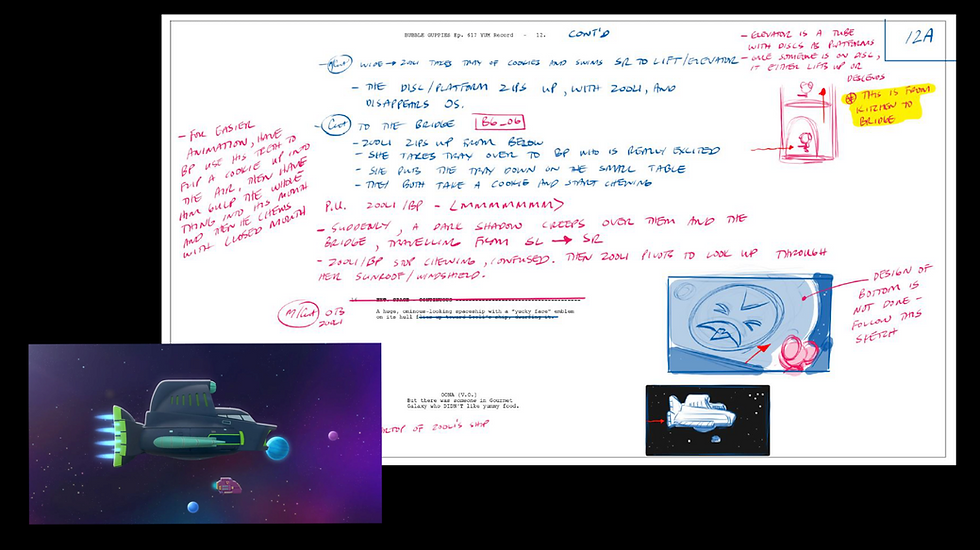 BUBBLE GUPPIES Ep. 617 YUM Record - 12.
CONT'D
12A
- ELEVATOR IS A TUBE
WITH DISCS AS PLATFORMS
- ONCE SOMEONE IS ON DISC,
IT EITHER LIFTS UP OR
DESCENDS
THIS IS FROM
KITCHEN TO
BRIDGE
WIDE → ZOOLI TAKES TRAY OF COOKIES AND SWIMS SR TO LIFT/ELEVATOR
- THE DISC/PLATFORM ZIPS UP, WITH ZOOLI, AND
DISAPPEARS OS.
- Cut TO THE BRIDGE BG_06
- ZOOLI ZIPS UP FROM BELOW
- SHE TAKES TRAY OVER TO BP WHO IS REALLY EXCITED
- SHE PUTS THE TRAY DOWN ON THE SMALL TABLE
- THEY BOTH TAKE A COOKIE AND START CHEWING
- FOR EASIER
ANIMATION, HAVE
BP USE HIS TEETH TO
FLIP A COOKIE UP INTO
THE AIR, THEN HAVE
HIM GULP THE WHOLE
THING INTO HIS MOUTH
AND THEN HE CHEWS
WITH CLOSED MOUTH
P.U. ZOOLI/BP - <MMMMMMMM>
- SUDDENLY, A DARK SHADOW CREEPS OVER THEM AND THE
BRIDGE, TRAVELLING FROM SL → SR
- ZOOLI/BP STOP CHEWING, CONFUSED. THEN ZOOLI PIVOTS TO LOOK UP THROUGH
HER SUNROOF/WINDSHIELD.
M/Cut OTS
ZOOLI
EXT. SPACE - CONTINUOUS
A huge, ominous-looking spaceship with a "yucky face" emblem
on its hull flies up toward Zooli's ship,
- DESIGN OF
BOTTOM IS
NOT DONE -
FOLLOW THIS
SKETCH
OONA (V.O.)
But there was someone in Gourmet
Galaxy who DIDN'T like yummy food.
TOP OF ZOOLI'S SHIP